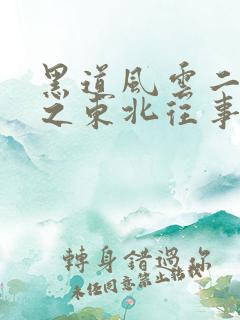 黑道風雲二
之東北往事
轉身錯過你
未经同意禁止转载